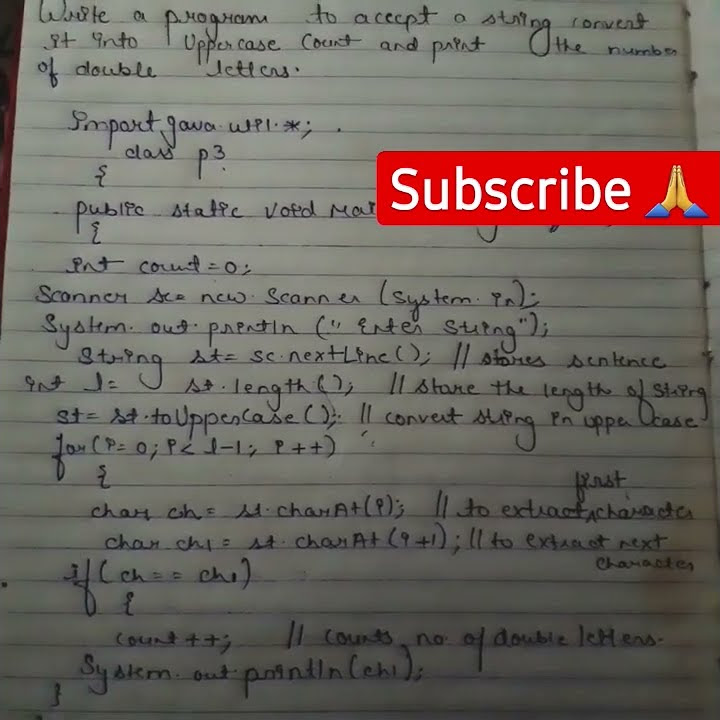 Write a program to accept a string convert
it into Uppercase Count and print the number
of double letters.
Import java.util.*;
class p3
{
Subscribe 🙏
public static void Mai
{
int count=0;
Scanner sc= new Scanner (System.in);
System.out.println ("Enter String");
String st= sc.nextLine(); // stores sentence
int l= st.length(); // store the length of String
st= st.toUpperCase(); // convert string in upper case
for(i=0; i< l-1; i++)
{
first
char ch= st.charAt(i); // to extract character
char ch1 = st.charAt(i+1); // to extract next
character
if(ch== ch1)
{
count++; // counts no. of double letters.
System.out.println(ch1);
}